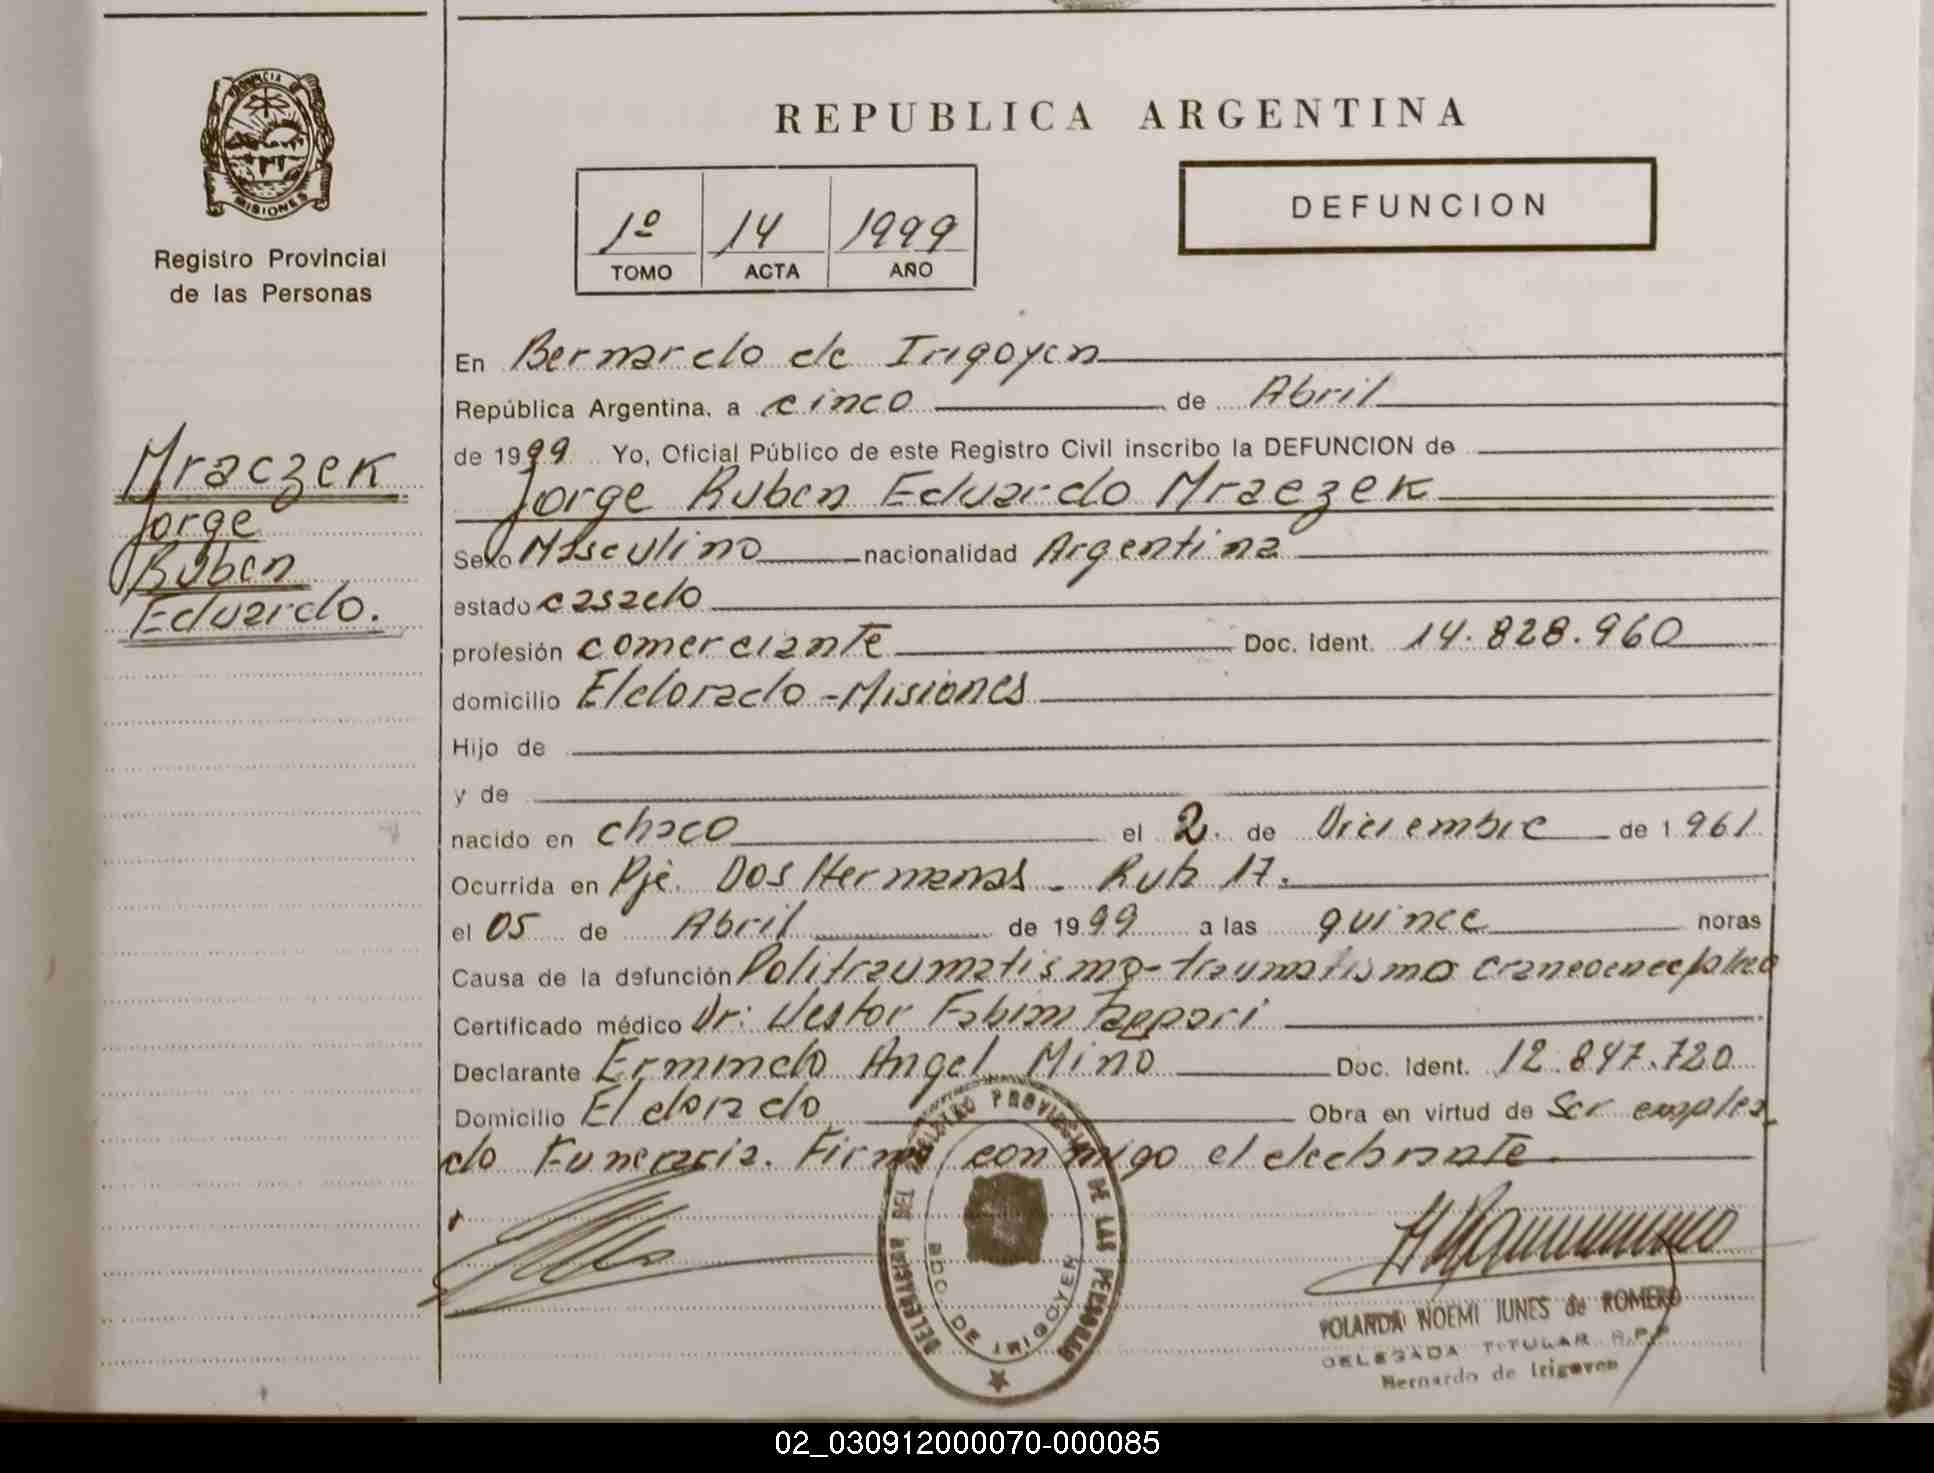 REPUBLICA ARGENTINA
PROVINCIA DE
MISIONES
Registro Provincial
de las Personas
1º 14 1999
TOMO ACTA AÑO
DEFUNCION
Mraczek
Jorge
Ruben
Eduardo.
En Bernardo de Irigoyen
República Argentina, a cinco de Abril
de 1999 Yo, Oficial Público de este Registro Civil inscribo la DEFUNCION de
Jorge Ruben Eduardo Mraczek
Sexo Masculino nacionalidad Argentina
estado casado
profesión comerciante Doc. Ident. 14.828.960
domicilio Eldorado - Misiones
Hijo de
y de
nacido en chaco el 2. de Diciembre de 1961
Ocurrida en Pje. Dos Hermanas - Ruta 17.
el 05 de Abril de 1999 a las quince horas
Causa de la defunción Politraumatismo - traumatismo craneoencefalico
Certificado médico Dr: Nestor Fabian
Declarante Ermindo Angel Mino Doc. Ident. 12.847.720
Domicilio Eldorado Obra en virtud de Ser emplea
do Funeraria. Firma conmigo el declarante.
REGISTRO PROVINCIAL DE LAS PERSONAS
BDO. DE IRIGOYEN
YOLANDA NOEMI JUNES de ROMERO
DELEGADA TITULAR R.P.P.
Bernardo de Irigoyen
02_030912000070-000085